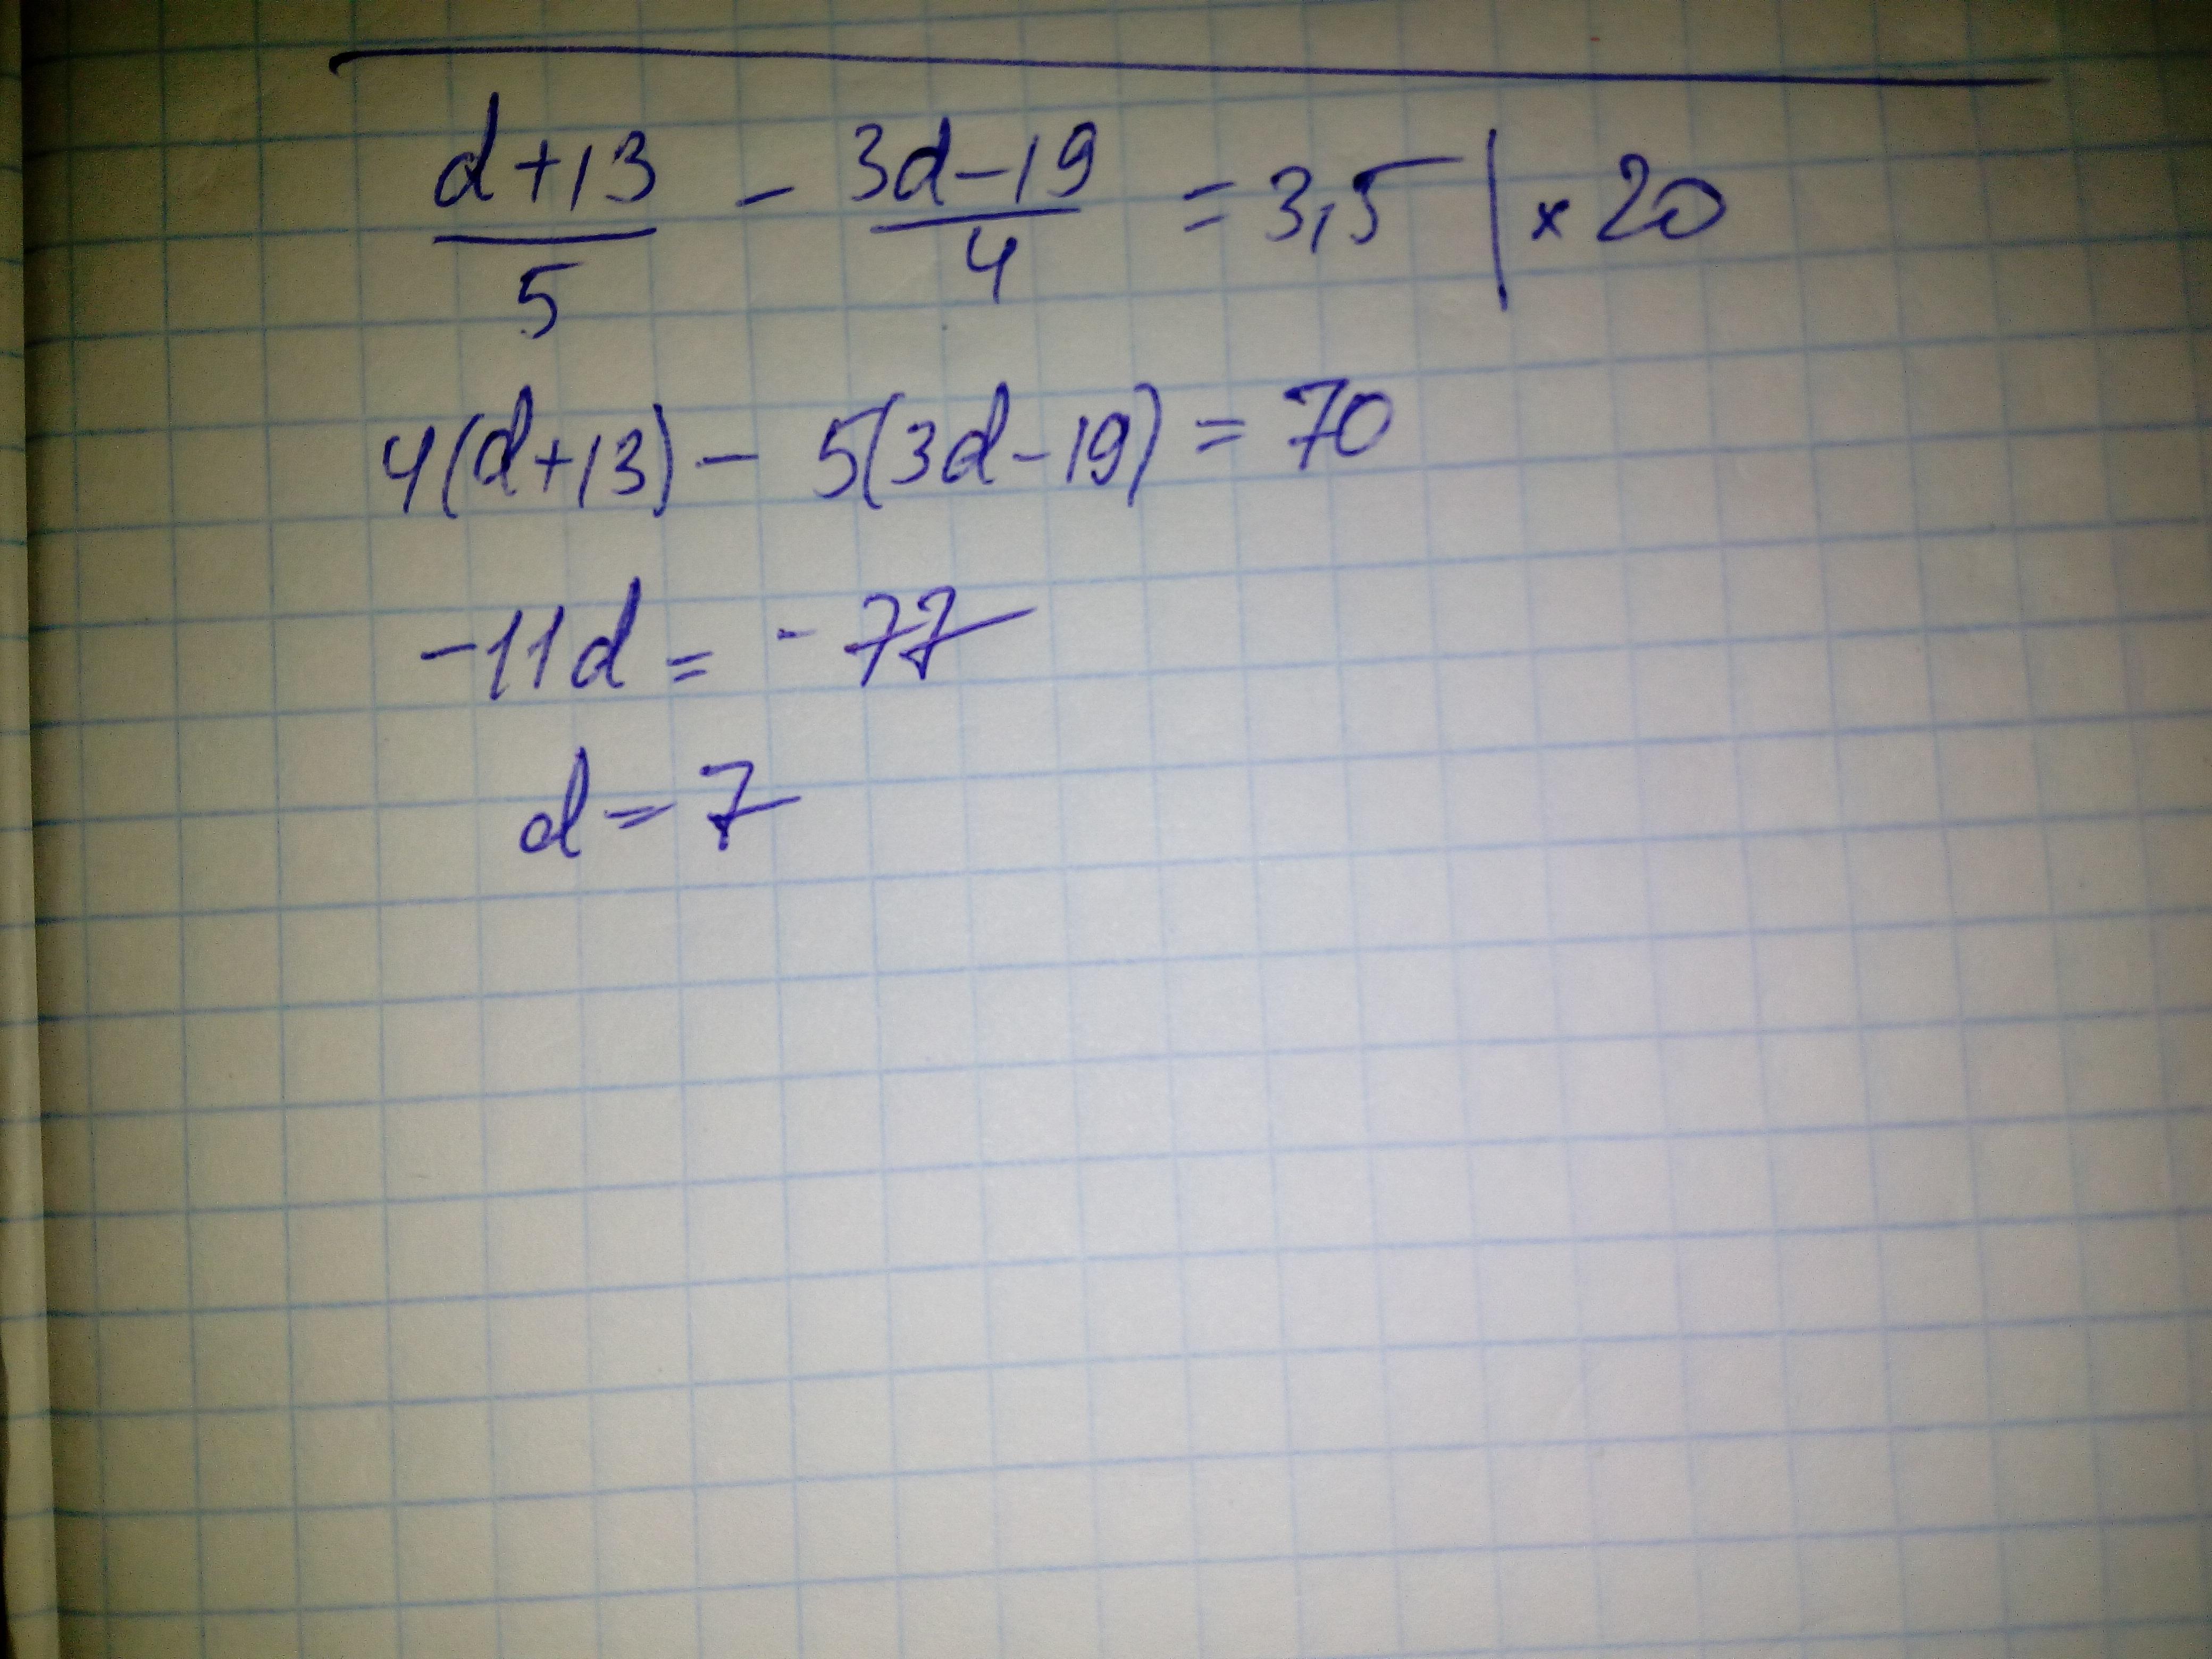 (d+13)/5 - (3d-19)/4 = 3,5 | × 20
4(d+13) - 5(3d-19) = 70
-11d = -77
d = 7